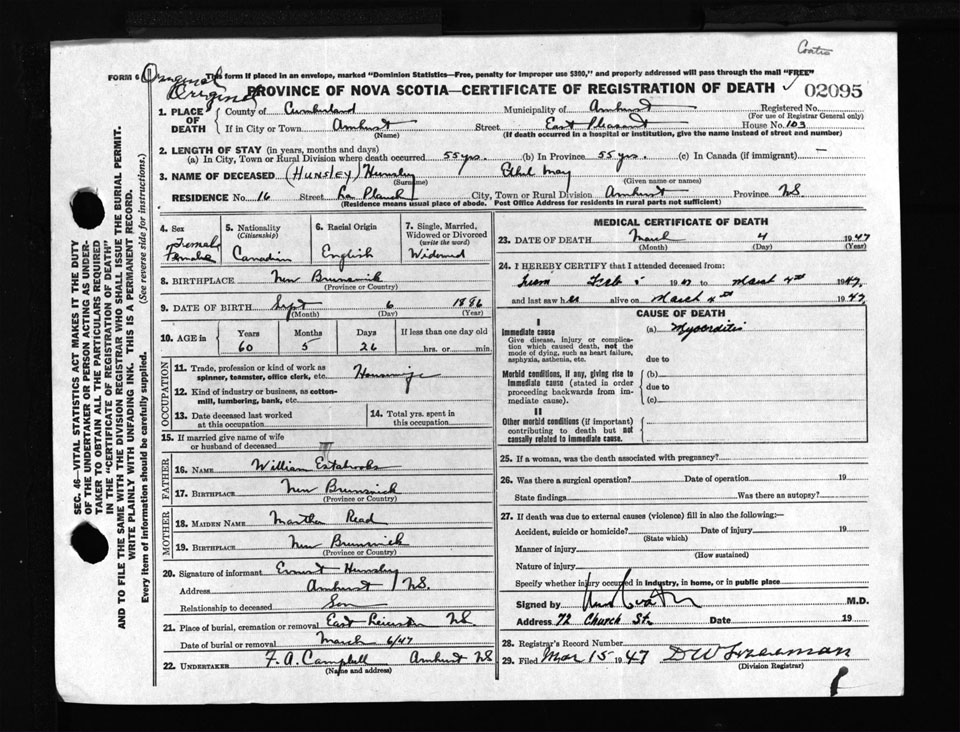 Coates
FORM 6 Original This form if placed in an envelope, marked "Dominion Statistics—Free, penalty for improper use $300," and properly addressed will pass through the mail "FREE"
Original PROVINCE OF NOVA SCOTIA—CERTIFICATE OF REGISTRATION OF DEATH 02095
1. PLACE OF DEATH County of Cumberland Municipality of Amherst Registered No.
(For use of Registrar General only)
If in City or Town Amherst Street East Pleasant House No. 103
(Name) (If death occurred in a hospital or institution, give the name instead of street and number)
2. LENGTH OF STAY (in years, months and days)
(a) In City, Town or Rural Division where death occurred 55 yrs. (b) In Province 55 yrs. (c) In Canada (if immigrant) —
3. NAME OF DECEASED (HUNSLEY) Hunsley Ethel May
(Surname) (Given name or names)
RESIDENCE No. 16 Street La Planch City, Town or Rural Division Amherst Province N.S.
(Residence means usual place of abode. Post Office Address for residents in rural parts not sufficient)
4. Sex Female Female
5. Nationality (Citizenship) Canadian
6. Racial Origin English
7. Single, Married, Widowed or Divorced (write the word) Widowed
8. BIRTHPLACE New Brunswick
(Province or Country)
9. DATE OF BIRTH Sept 6 1886
(Month) (Day) (Year)
10. AGE in Years Months Days If less than one day old
60 5 26 hrs. or min.
OCCUPATION
11. Trade, profession or kind of work as spinner, teamster, office clerk, etc. Housewife
12. Kind of industry or business, as cotton-mill, lumbering, bank, etc.
13. Date deceased last worked at this occupation
14. Total yrs. spent in this occupation
15. If married give name of wife or husband of deceased
FATHER
16. NAME William Estabrooks
17. BIRTHPLACE New Brunswick
(Province or Country)
MOTHER
18. MAIDEN NAME Martha Read
19. BIRTHPLACE New Brunswick
(Province or Country)
20. Signature of informant Ernest Hunsley
Address Amherst N.S.
Relationship to deceased Son
21. Place of burial, cremation or removal East Leicester N.S.
Date of burial or removal March 6/47
22. UNDERTAKER F. A. Campbell Amherst N.S.
(Name and address)
MEDICAL CERTIFICATE OF DEATH
23. DATE OF DEATH March 4 1947
(Month) (Day) (Year)
24. I HEREBY CERTIFY that I attended deceased from:
from Feb 1947 to March 4th 1947,
and last saw her alive on March 4th 1947.
CAUSE OF DEATH
I
Immediate cause (a) Myocarditis
Give disease, injury or complication which caused death, not the mode of dying, such as heart failure, asphyxia, asthenia, etc. due to
Morbid conditions, if any, giving rise to immediate cause (stated in order proceeding backwards from immediate cause). (b) due to (c)
II
Other morbid conditions (if important) contributing to death but not causally related to immediate cause.
25. If a woman, was the death associated with pregnancy?
26. Was there a surgical operation? Date of operation 19
State findings Was there an autopsy?
27. If death was due to external causes (violence) fill in also the following:—
Accident, suicide or homicide? Date of injury 19
(State which)
Manner of injury
(How sustained)
Nature of injury
Specify whether injury occurred in industry, in home, or in public place
Signed by M.D.
Address 72 Church St. Date 19
28. Registrar's Record Number
29. Filed Mar 15 1947 D W Freeman
(Division Registrar)
SEC. 46—VITAL STATISTICS ACT MAKES IT THE DUTY
OF THE UNDERTAKER OR PERSON ACTING AS UNDER-
TAKER TO OBTAIN ALL THE PARTICULARS REQUIRED
IN THE "CERTIFICATE OF REGISTRATION OF DEATH"
AND TO FILE THE SAME WITH THE DIVISION REGISTRAR WHO SHALL ISSUE THE BURIAL PERMIT.
WRITE PLAINLY WITH UNFADING INK. THIS IS A PERMANENT RECORD.
Every item of information should be carefully supplied. (See reverse side for instructions.)